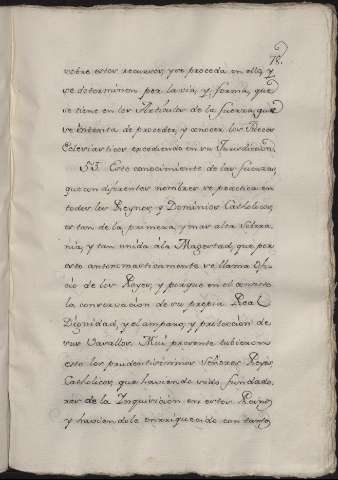 75.
sobre estos recursos, y se proceda en ello, y
se determinen por la via, y forma, que
se tiene en los Artículos de la fuerza, que
se intenta de proceder, y conocer los Jueces
Eclesiasticos excediendo en su Jurisdiccion.
53. Este conocimiento de las fuerzas
que con diferentes nombres se practica en
todos los Reynos, y Dominios Catholicos,
es tan de la primera, y mas alta Sobera
nia, y tan unida á la Magestad, que por
esto antonomasticamente se llama Ofi
cio de los Reyes, y porque en el consiste
la conservacion de su propia Real
Dignidad, y el amparo, y proteccion de
sus Vasallos. Mui presente tubieron
esto los prudentisimos Señores Reyes
Catholicos que haviendo sido, fundado
res de la Inquisicion en estos Reinos
y haviendola enriquecido con tanto